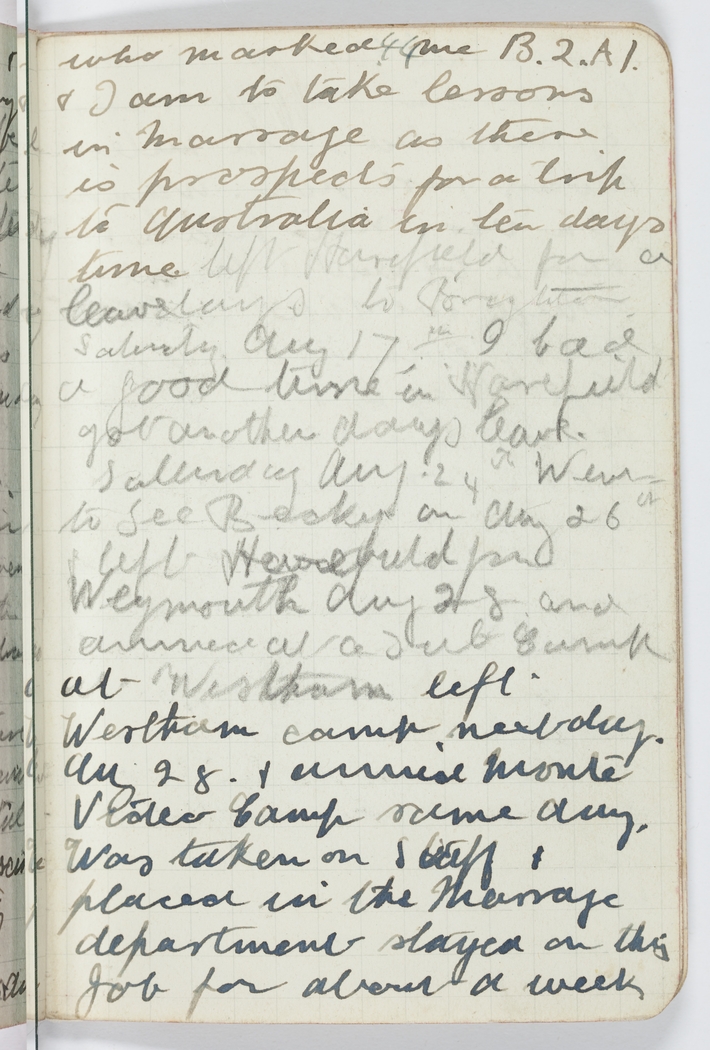 who marked 44 me B.2.A1.
& I am to take lessons
in Massage as there
is prospects for a trip
to Australia in ten days
time left Harefield for a
leave days to Brighton
Saturday Aug 17th I had
a good time in Harefield
got another days leave.
Saturday Aug. 24th Went
to See Becky on Aug 26th
& left Harefield for
Weymouth Aug 28 and
arrived at a Sub Camp
at Westham left
Westham camp next day.
Au 28. & arrived Monte
Video Camp same day.
Was taken on Staff &
placed in the Massage
department stayed on this
Job for about a week